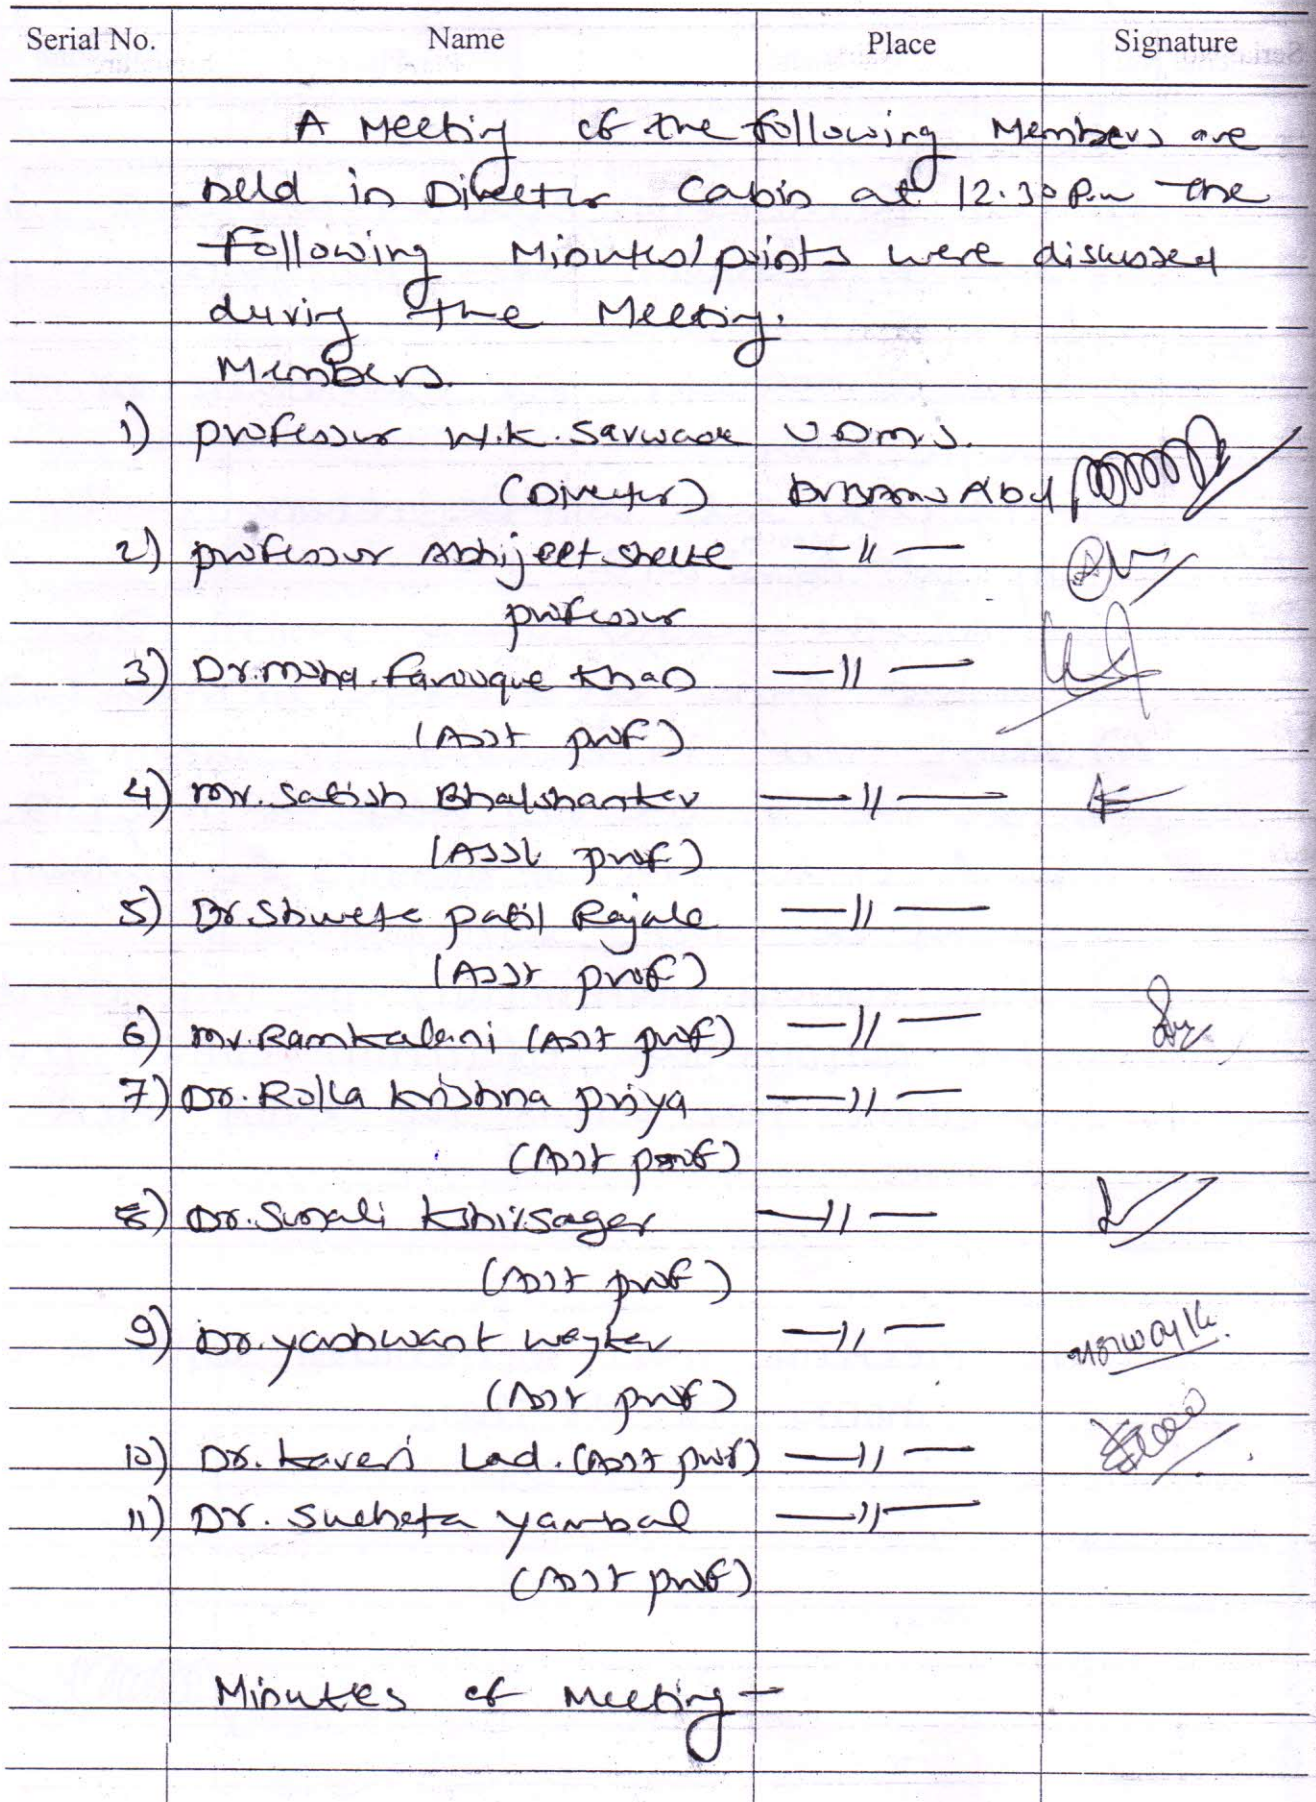 Serial No. Name Place Signature
A Meeting of the following Members are
held in Director Cabin at 12.30 P.m The
following Minutes/points were discussed
during the Meeting.
Members.
1) professor W.K. Sarwade U.D.M.S.
(Director) DrBAMU Abd
2) professor Abhijeet Shelke —〃—
professor
3) Dr. Mohd. Farouque Khan —〃—
(Asst prof)
4) Mr. Satish Bhalshankar —〃—
(Asst prof)
5) Dr. Shweta patil Rajale —〃—
(Asst prof)
6) Mr. Ramkalani (Asst prof) —〃—
7) Dr. Rolla Krishna priya —〃—
(Asst prof)
8) Dr. Sonali Kshirsagar —〃—
(Asst prof)
9) Dr. yashwant Waykar —〃—
(Asst prof)
10) Dr. Kaveri Lad. (Asst prof) —〃—
11) Dr. Sucheta Yambal —〃—
(Asst prof)
Minutes of Meeting —